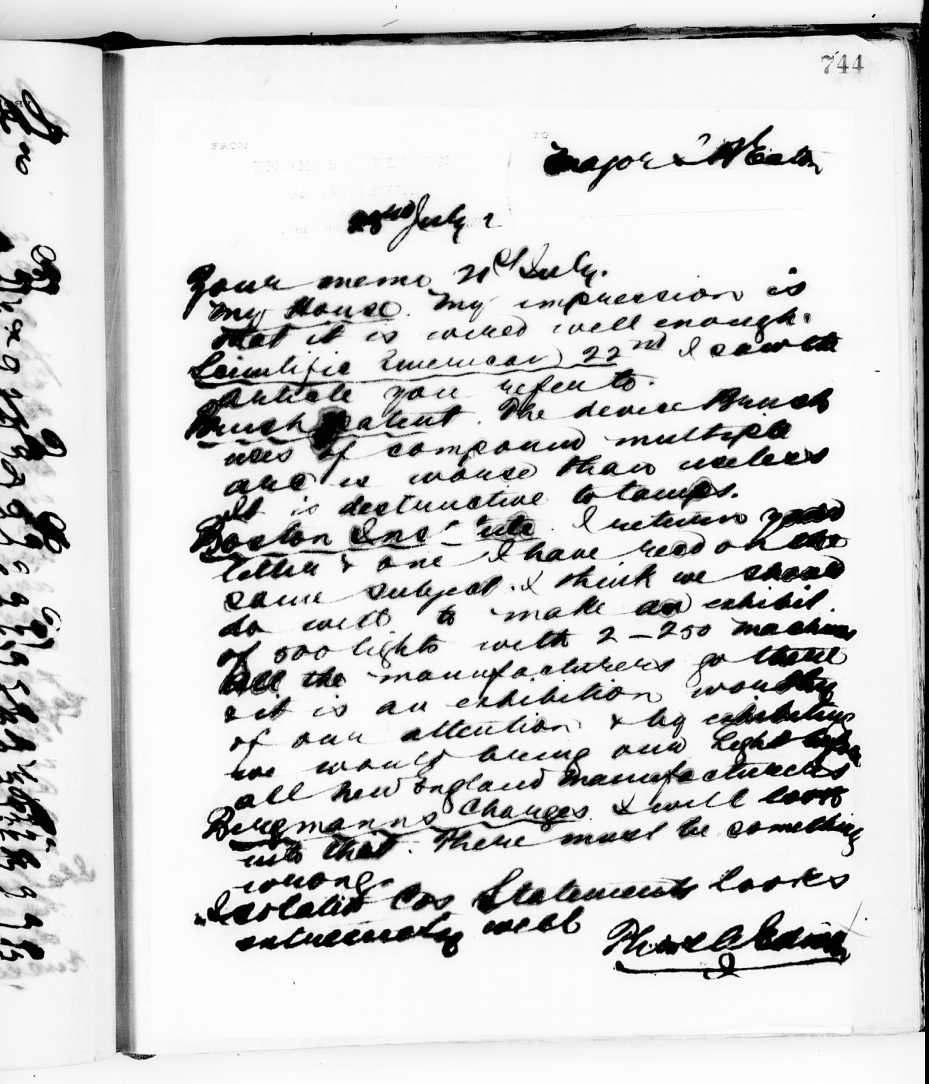 744
Major S B Eaton
22nd July 2
Your memo 21st July.
My House. My impression is
that it is wired well enough.
Scientific American 22nd I saw the
article you refer to.
Brush patent. The device Brush
uses of compound multiple
arc is worse than useless
It is destructive to lamps.
Boston Institute. I return your
letter & one I have recd on the
same subject. I think we should
do well to make an exhibit.
of 500 lights with 2-250 machines
All the manufacturers go there
& it is an exhibition worthy
of our attention & by exhibiting
we would bring our Light before
all New England manufacturers
Bergmanns Charges I will look
into that. There must be something
wrong.
Isolated Cos Statements looks
extremely well
Thos A Edison